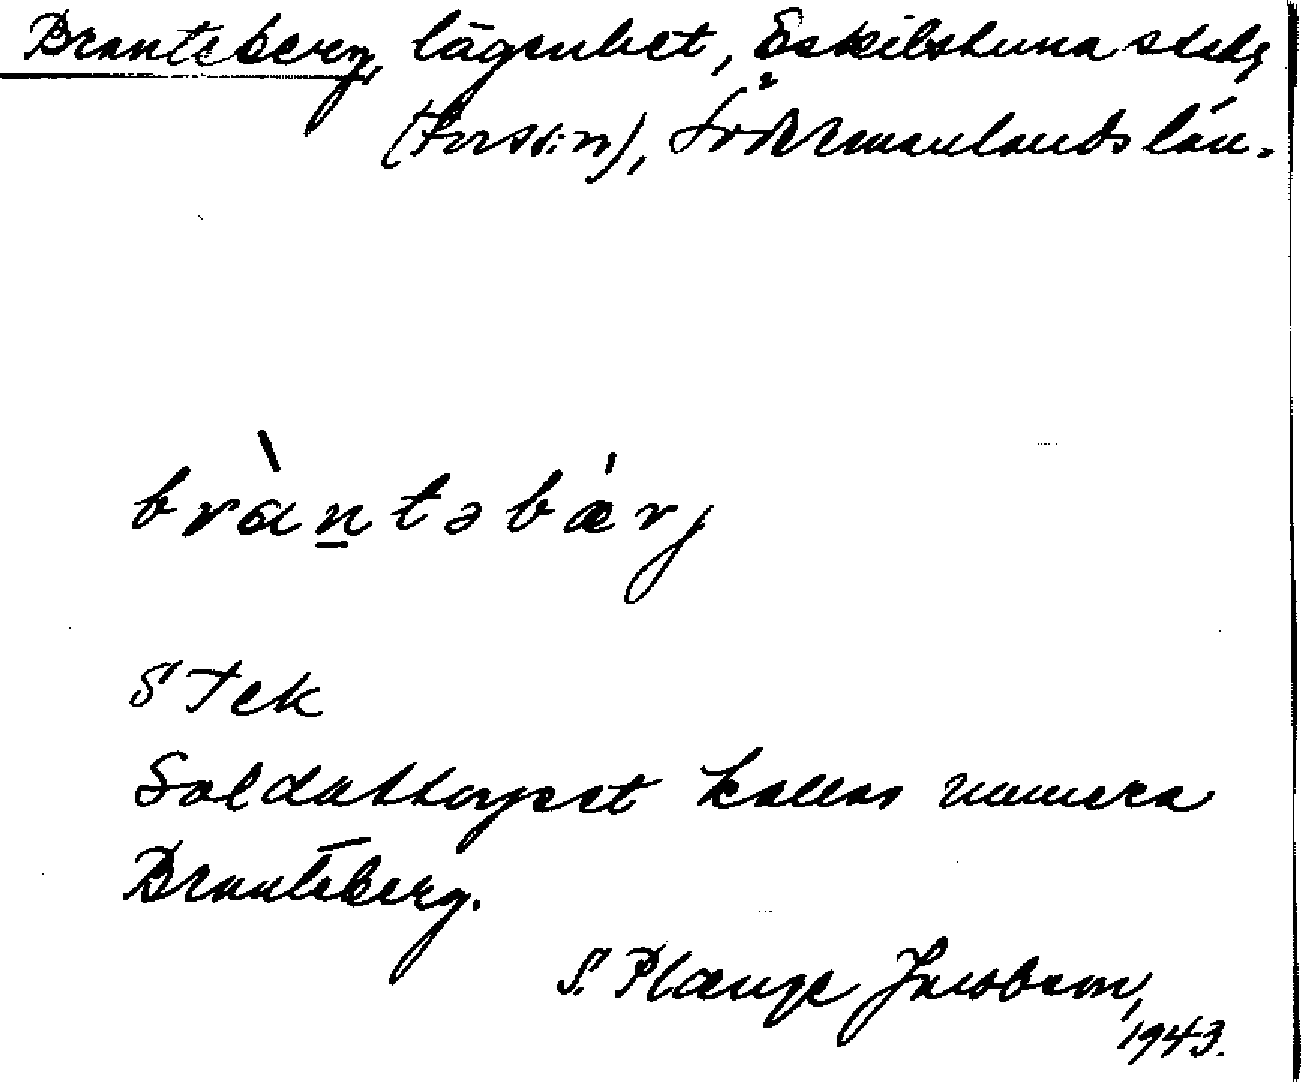 Branteberg, lägenhet, Eskilstuna stad,
(Fors s:n), Södermanlands län.
bràntəbær̍j
S Tek
Soldattorpet kallas numera
Branteberg.
S. Plænge Jacobson,
1943.